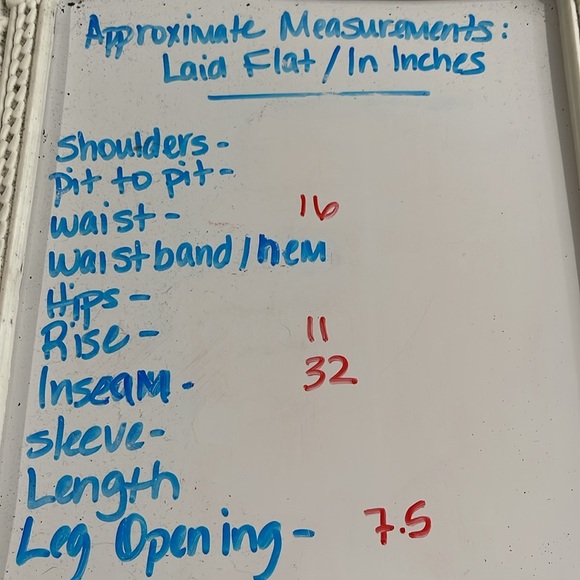 Approximate Measurements:
Laid Flat/In Inches
Shoulders-
Pit to pit-
Waist- 16
Waistband/hem
Hips-
Rise- 11
Inseam- 32
Sleeve-
Length
Leg Opening- 7.5